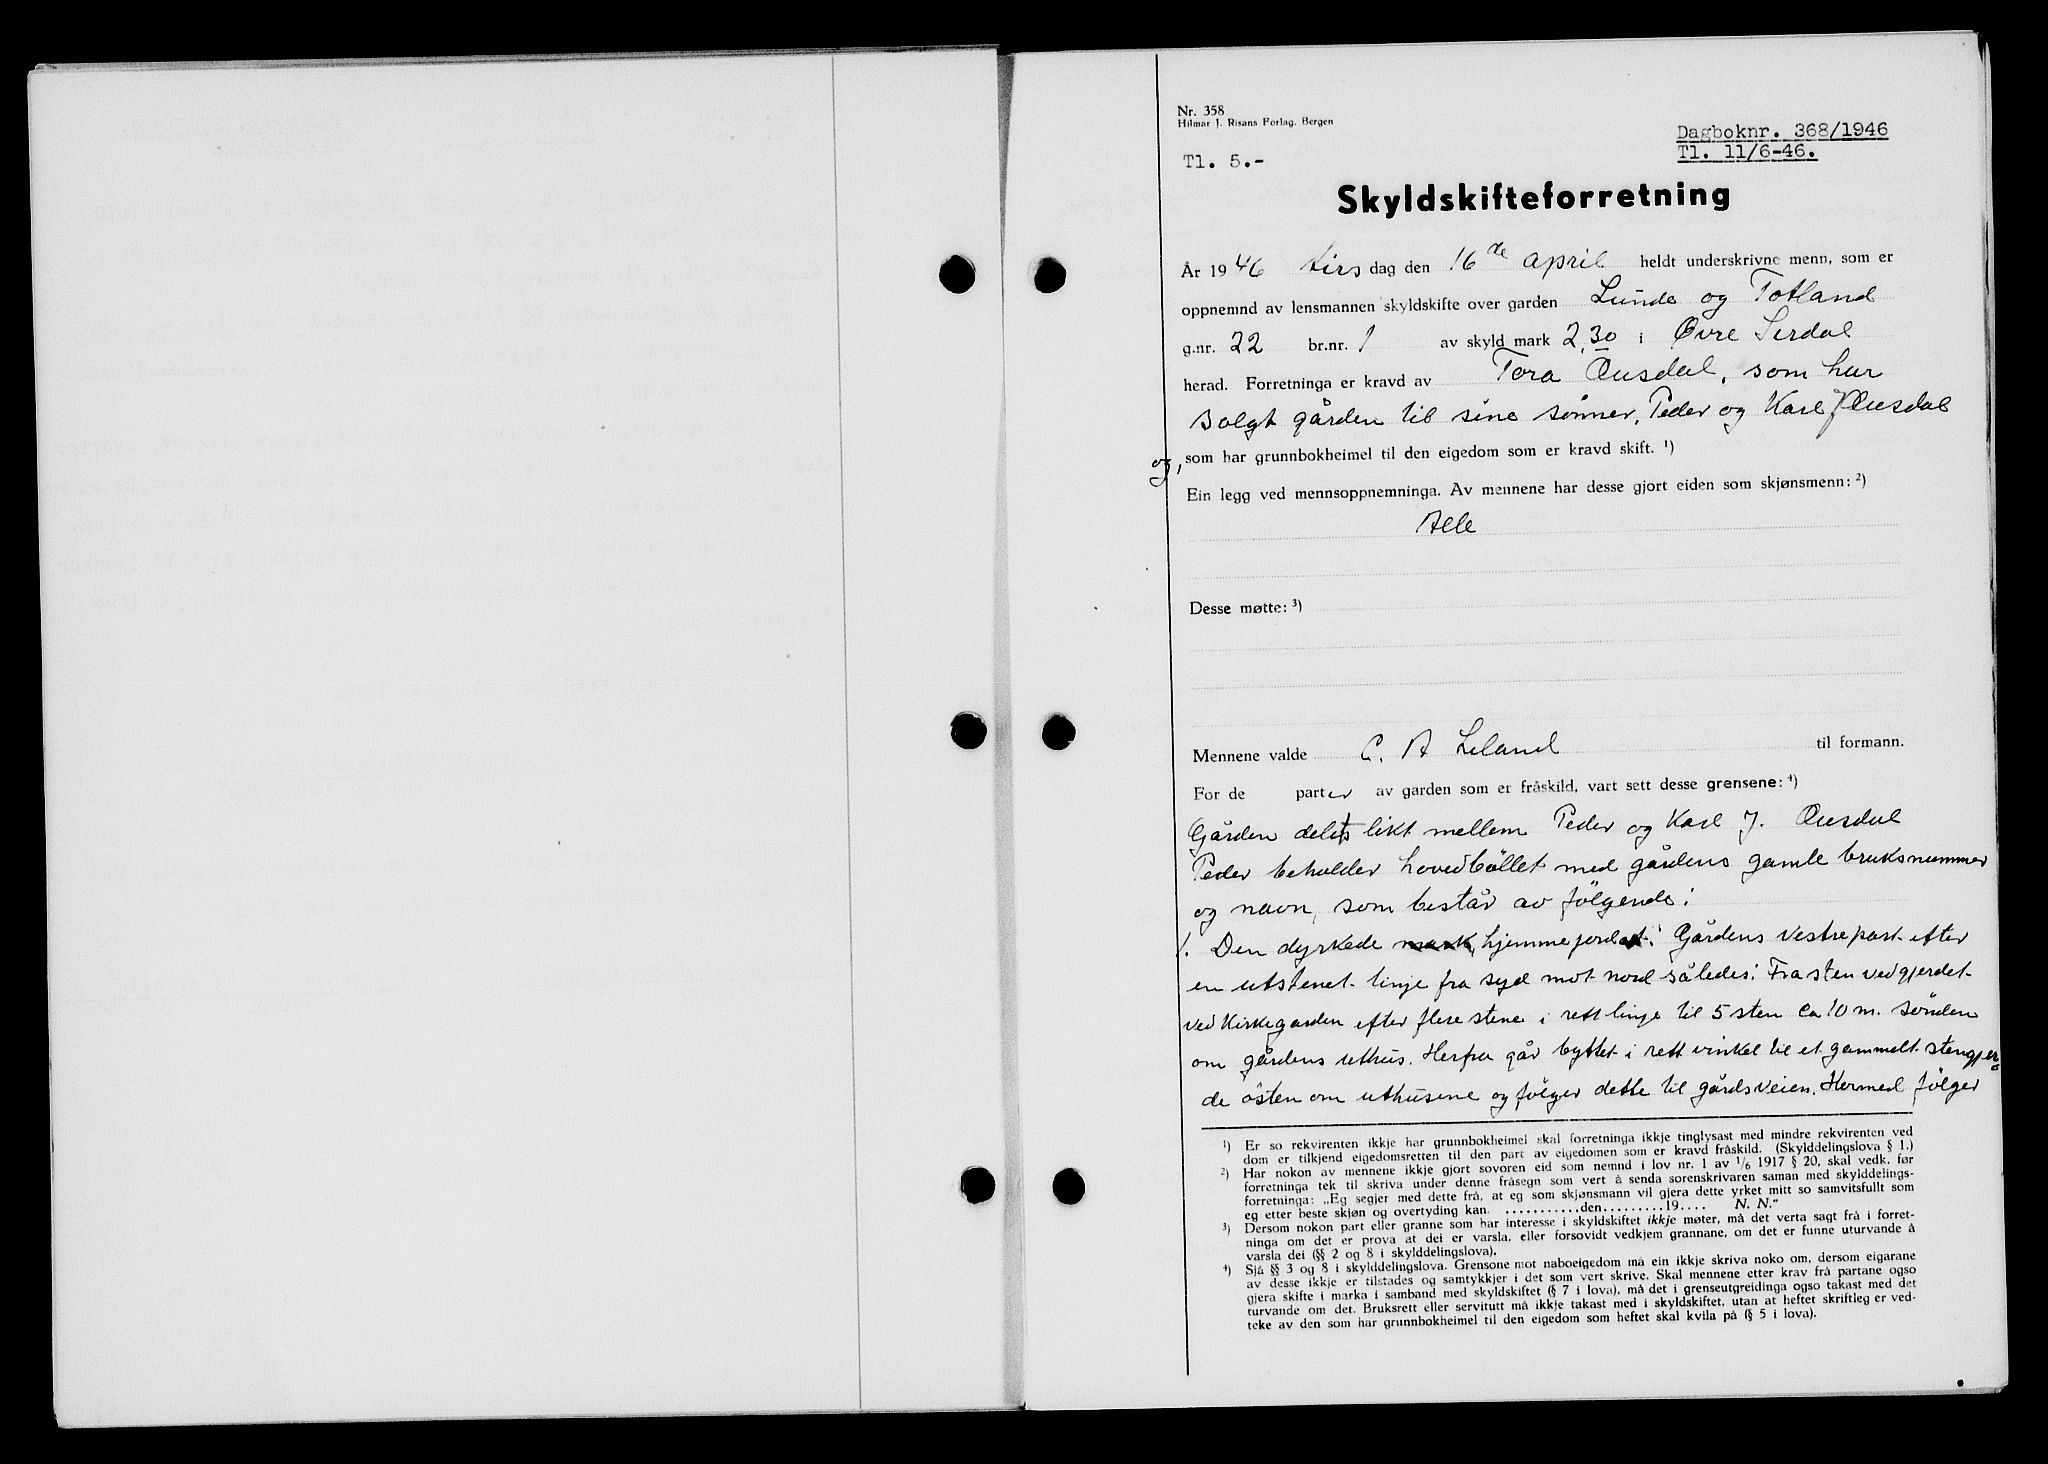 Nr. 358
Hilmar J. Risans Forlag. Bergen
Dagboknr. 368/1946
Tl. 11/6-46.
Tl. 5.-
Skyldskifteforretning
År 1946 tirsdag den 16de april heldt underskrivne menn, som er
oppnemnd av lensmannen skyldskifte over garden Lunde og Totland
g.nr. 22 br.nr. 1 av skyld mark 2,30 i Øvre Sirdal
herad. Forretninga er kravd av Tora Ousdal, som har
solgt gården til sine sønner, Peder og Karl J Ousdal
og, som har grunnbokheimel til den eigedom som er kravd skift. 1)
Ein legg ved mennsoppnemninga. Av mennene har desse gjort eiden som skjønsmenn: 2)
Alle
Desse møtte: 3)
Mennene valde C. A Liland til formann.
For de parter av garden som er fråskild, vart sett desse grensene: 4)
Gården delts likt mellem Peder og Karl J. Ousdal
Peder beholder hovedbøllet med gårdens gamle bruksnummer
og navn, som består av følgende:
1. Den dyrkede mark, hjemmejordet: Gårdens vestre part efter
en utstenet linje fra syd mot nord således: Fra sten ved gjerdet
ved Kirkegarden efter flere stene i rett linje til 5 sten ca 10 m. sønden
om gårdens uthus. Herfra går byttet i rett vinkel til et gammelt stengjer-
de østen om uthusene og følger dette til gårdsveien. Hermed følger
1) Er so rekvirenten ikkje har grunnbokheimel skal forretninga ikkje tinglysast med mindre rekvirenten ved
dom er tilkjend eigedomsretten til den part av eigedomen som er kravd fråskild. (Skylddelingslova § 1.)
2) Har nokon av mennene ikkje gjort sovoren eid som nemnd i lov nr. 1 av 1/6 1917 § 20, skal vedk. før
forretninga tek til skriva under denne fråsegn som vert å senda sorenskrivaren saman med skylddelings-
forretninga: „Eg segjer med dette frå, at eg som skjønsmann vil gjera dette yrket mitt so samvitsfullt som
eg etter beste skjøn og overtyding kan. ...........den.........19.... N. N.“
3) Dersom nokon part eller granne som har interesse i skyldskiftet ikkje møter, må det verta sagt frå i forret-
ninga om det er prova at dei er varsla, eller forsovidt vedkjem grannane, om det er funne uturvande å
varsla dei (§§ 2 og 8 i skylddelingslova).
4) Sjå §§ 3 og 8 i skylddelingslova. Grensone mot naboeigedom må ein ikkje skriva noko om, dersom eigarane
av desse ikkje er tilstades og samtykkjer i det som vert skrive. Skal mennene etter krav frå partane ogso
gjera skifte i marka i samband med skyldskiftet (§ 7 i lova), må det i grenseutgreidinga ogso takast med det
turvande om det. Bruksrett eller servitutt må ikkje takast med i skyldskiftet, utan at heftet skriftleg er ved-
teke av den som har grunnbokheimel til den eigedom som heftet skal kvila på (§ 5 i lova).